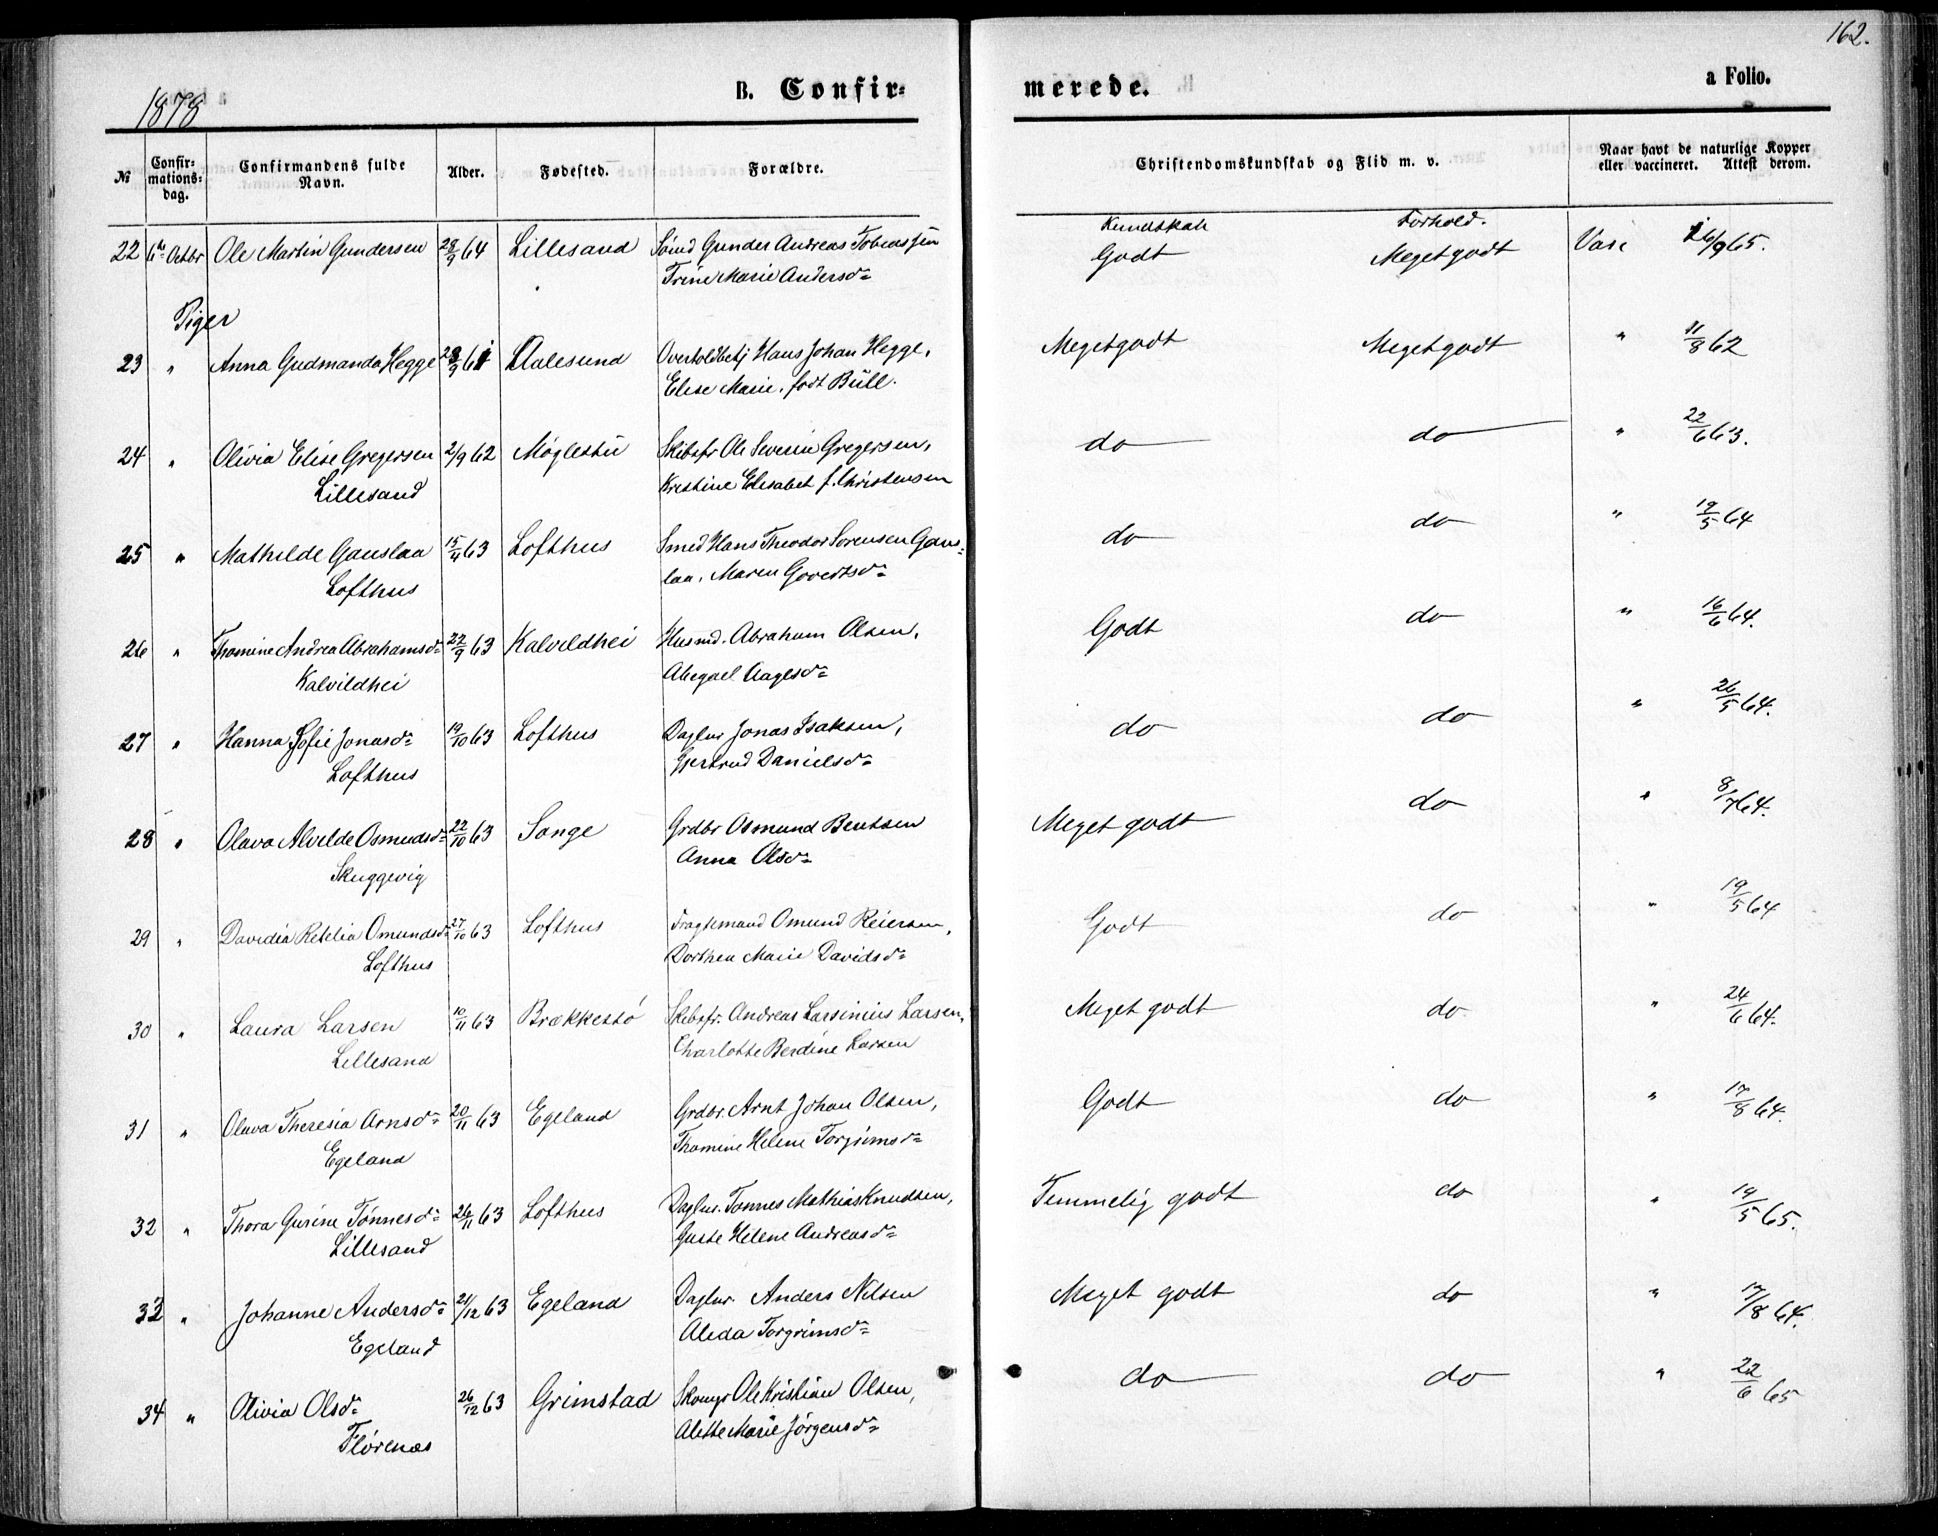 162.
1878
B. Confir-
merede.
a Folio.
№
Confir-
mations-
dag.
Confirmandens fulde
Navn.
Alder.
Fødested.
Forældre.
Christendomskundskab og Flid m. v.
Naar havt de naturlige Kopper
eller vaccineret. Attest derom.
Kundskab Forhold.
22 6te Octbr Ole Martin Gundersen 28/9 64 Lillesand Sømd Gunder Andreas Tobiassen Godt Megetgodt Vac 26/9 65.
Trine Marie Andersd=
Piger
23 " Anna Gudmanda Hegge 28/9 61 Aalesund Overtoldbetj Hans Johan Hegge, Megetgodt Megetgodt " 11/8 62
Elise Marie, født Büll.
24 " Olivia Elise Gregersen 2/9 62 Møglestu Skibsfr Ole Severin Gregersen, do do " 22/6 63.
Lillesand Kristine Elisabet f. Christensen
25 " Mathilde Gauslaa 15/4 63 Lofthus Smed Hans Theodor Sorensen Gaus- do do " 19/5 64
Lofthus laa, Maren Govertsd=
26 " Thomine Andrea Abrahamsd= 22/9 63 Kalvildhei Husmd. Abraham Olsen, Godt do " 16/6 64.
Kalvildhei Abegael Aagesd=
27 " Hanna Sofie Jonasd= 19/10 63 Lofthus Daglnr Jonas Isaksen, do do " 26/5 64.
Lofthus Gjertrud Danielsd=
28 " Olava Alvilde Osmundsd= 22/10 63 Songe Grdbr Osmund Bentsen Meget godt do " 8/7 64.
Skuggevig Anna Olsd=
29 " Davidia Retelia Omundsd= 27/10 63 Lofthus Fragtemand Omund Reiersen, Godt do " 19/5 64
Lofthus Dorthea Marie Davidsd=
30 " Laura Larsen 10/11 63 Brækkestø Skibsfr. Andreas Larsinius Larsen, Meget godt do " 24/6 64.
Lillesand Charlotte Berdine Larsen
31 " Olava Theresia Arnsd= 20/11 63 Egeland Grdbr. Arnt Johan Olsen, Godt do " 17/8 64.
Egeland Thomine Helene Torgrimsd=
32 " Thora Gurine Tønnesd= 26/11 63 Lofthus Daglnr. Tønnes Mathias Knudsen, Temmelig godt do " 19/5 65.
Lillesand Guste Helene Andreasd=
33 " Johanne Andersd= 21/12 63 Egeland Daglnr. Anders Nilsen Meget godt do " 17/8 64.
Egeland Aleda Torgrimsd=
34 " Olivia Olsd= 26/12 63 Grimstad Skomgr Ole Kristian Olsen, do do " 22/6 65
Flørenæs Alette Marie Jørgensd=